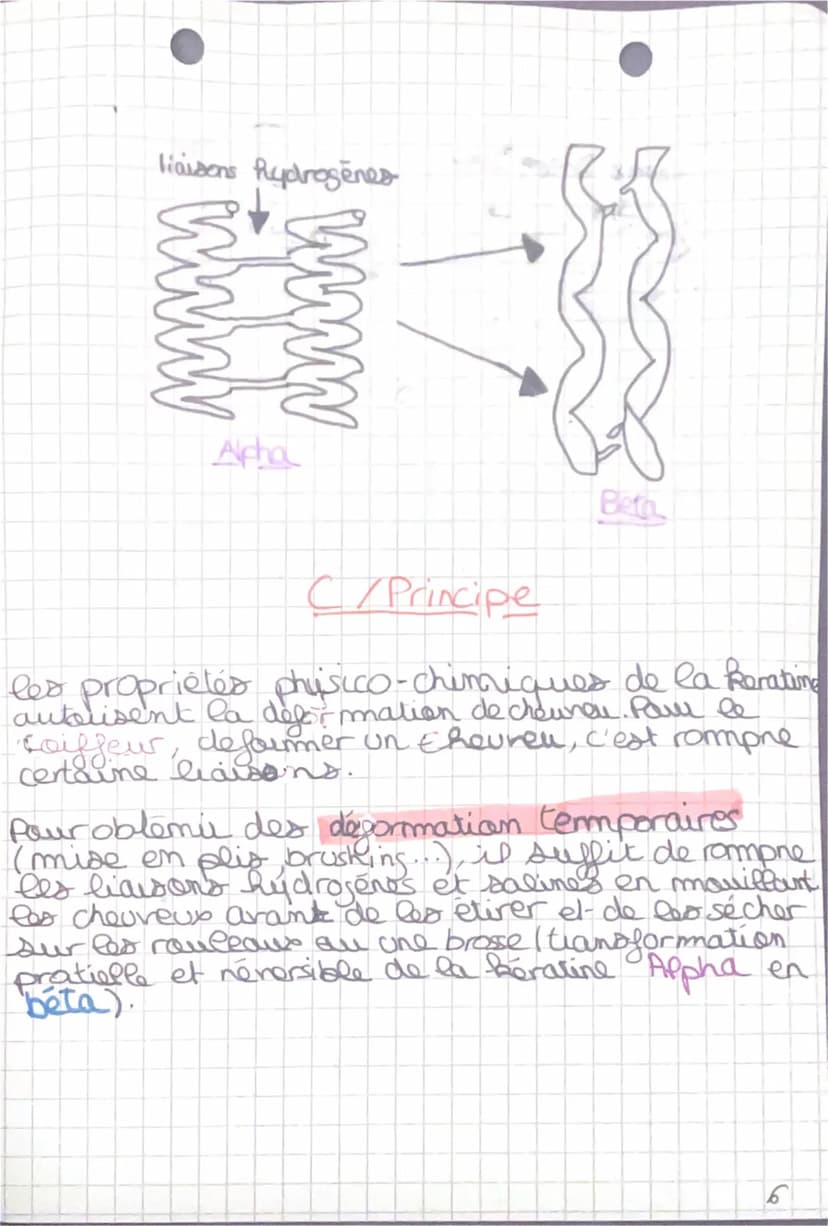 liaisons hydrogènes
Alpha
Beta
C / Principe
les propriétés physico-chimiques de la keratine
autorisent la déformation de cheveu. Pour le
coiffeur, deformer un cheveu, c'est rompre
certaine liaisons.
Pour obtenir des déformation temporaires
(mise en plis, brushing...), il suffit de rompre
les liaisons hydrogénes et salines en mouillant
les cheveux avant de les étirer et de les sécher
sur les rouleaux ou une brose (transformation
pratielle et réversible de la kératine Alpha en
béta).
6